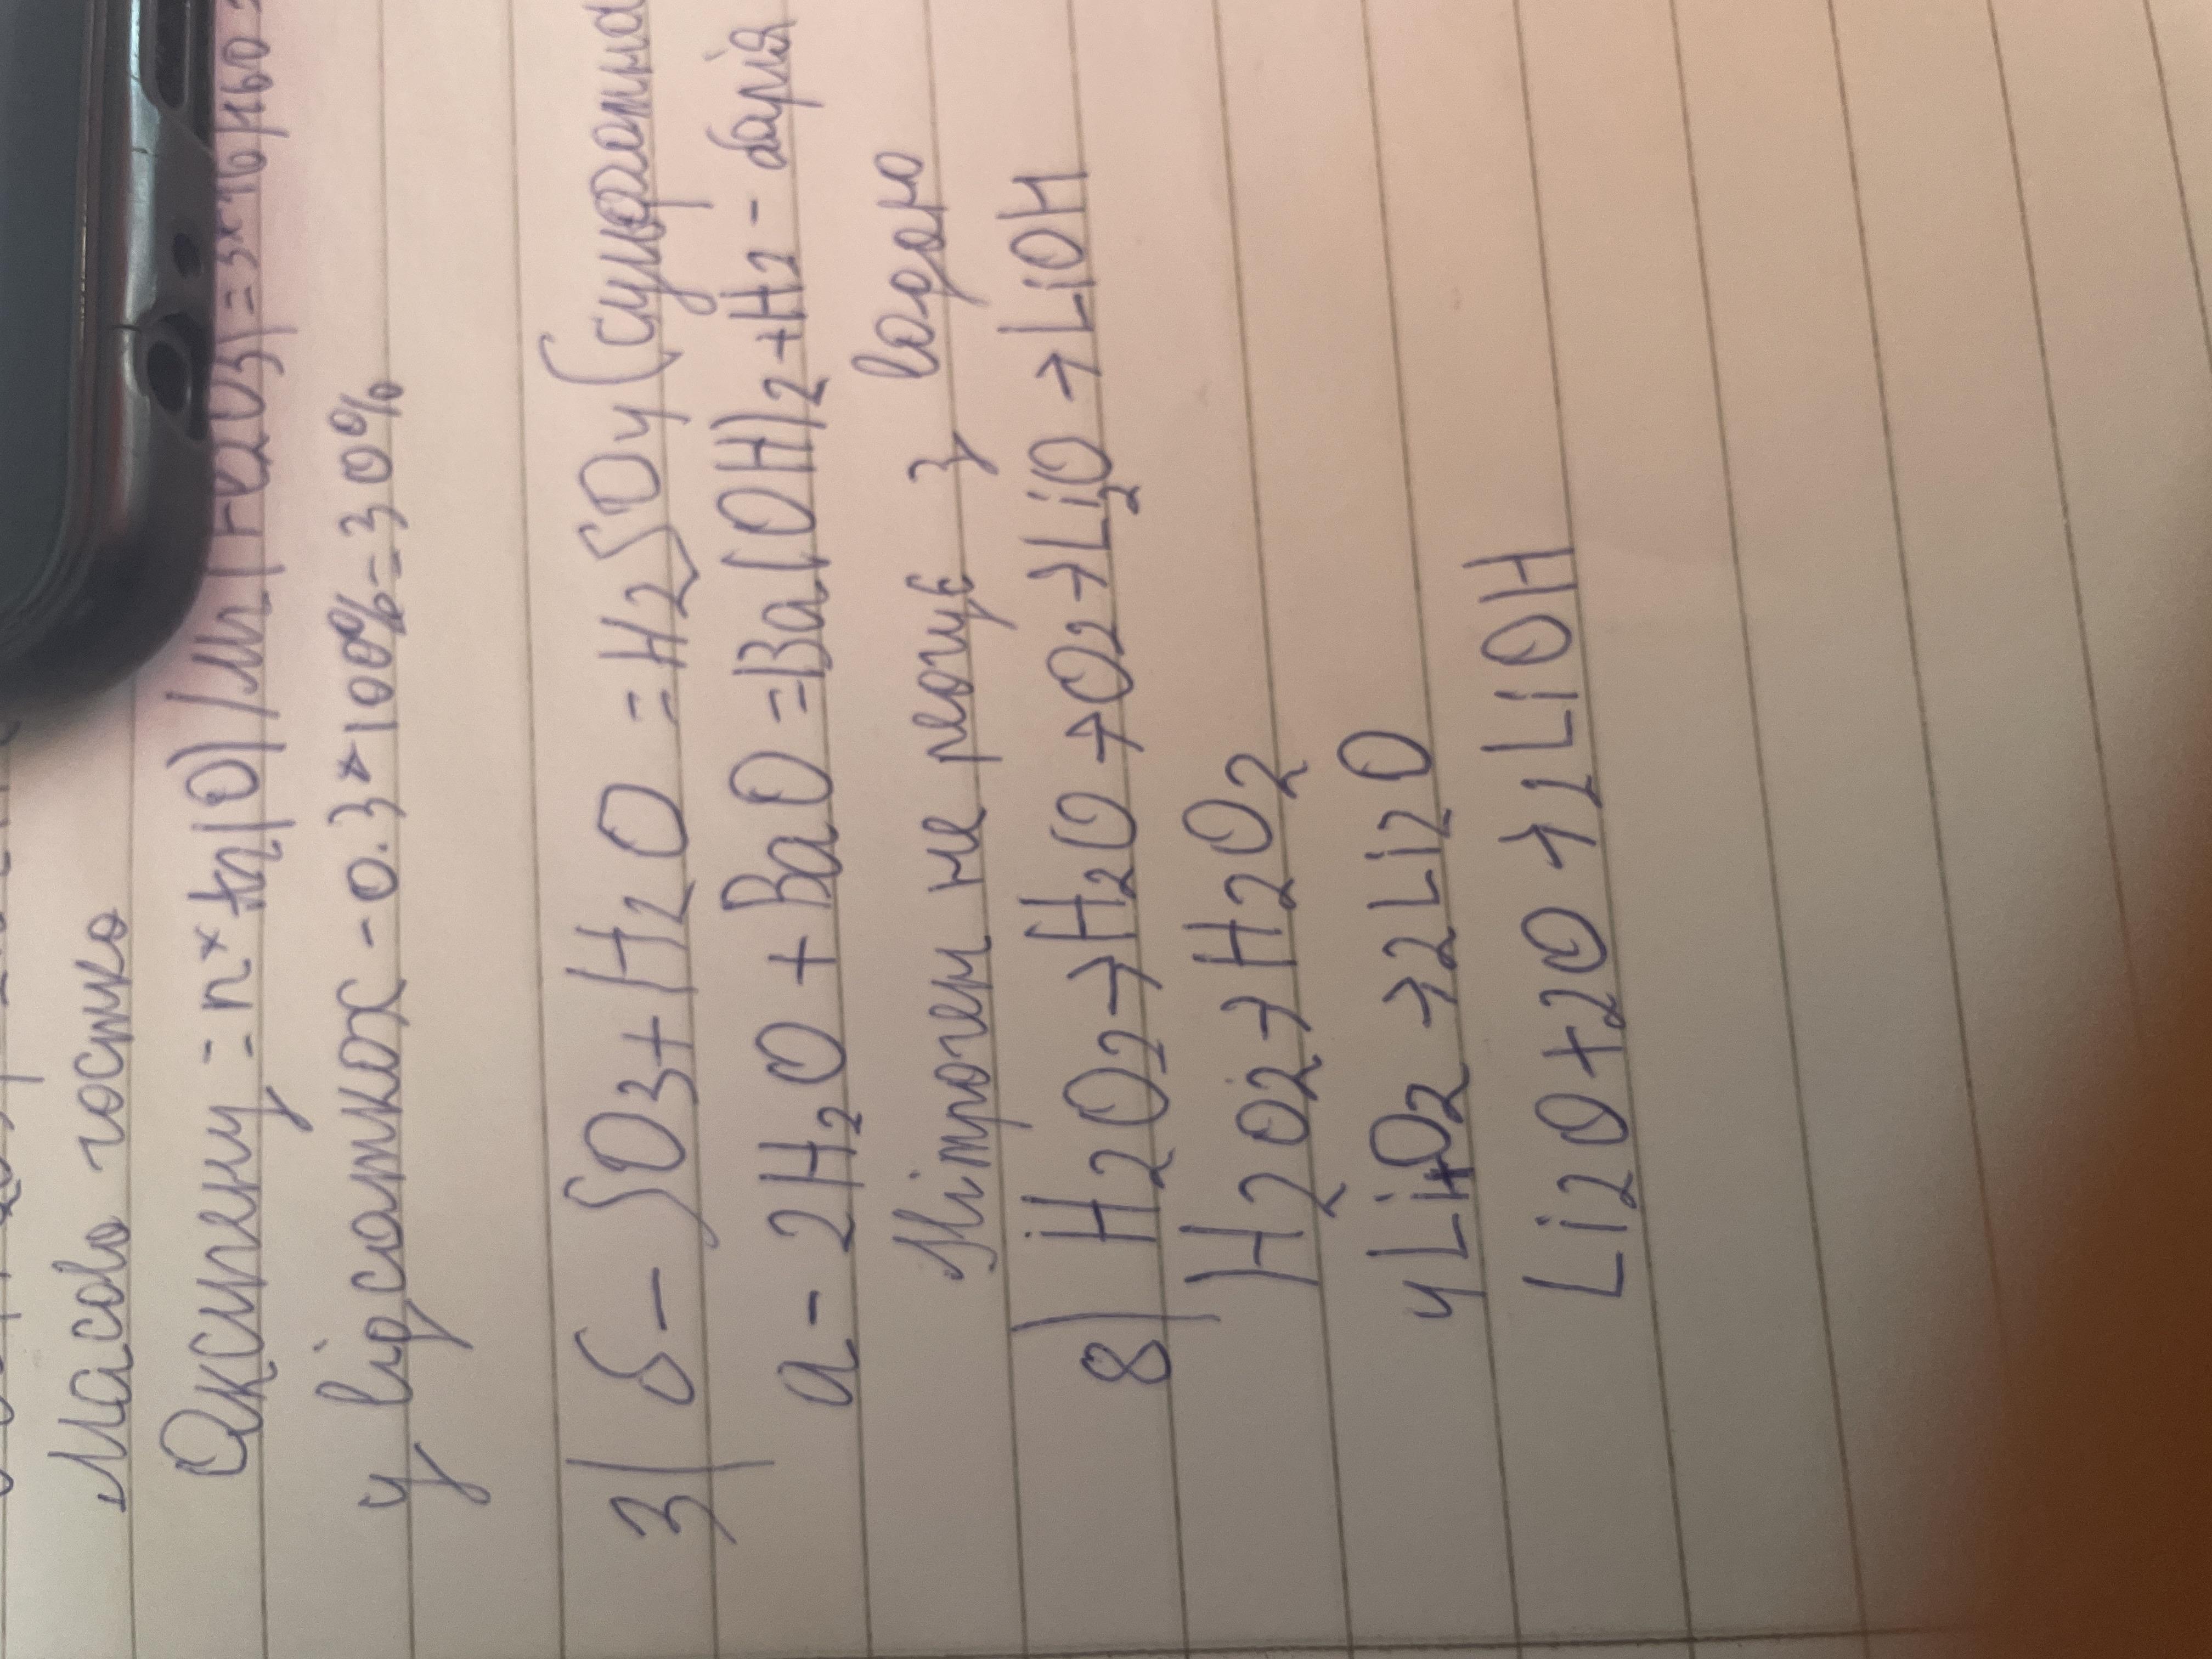 Масова частка
Оксигену = n * Ar(O) / Mr(Fe2O3) = 3*16/160
у відсотках - 0.3*100%=30%
3) б - SO3 + H2O = H2SO4 (сульфатна
а - 2H2O + BaO = Ba(OH)2 + H2 - барія
Нітроген не реагує з водою
8) H2O2→H2O→O2→Li2O→LiOH
H2O2→H2O2
4LiO2→2Li2O
Li2O+2O→2LiOH